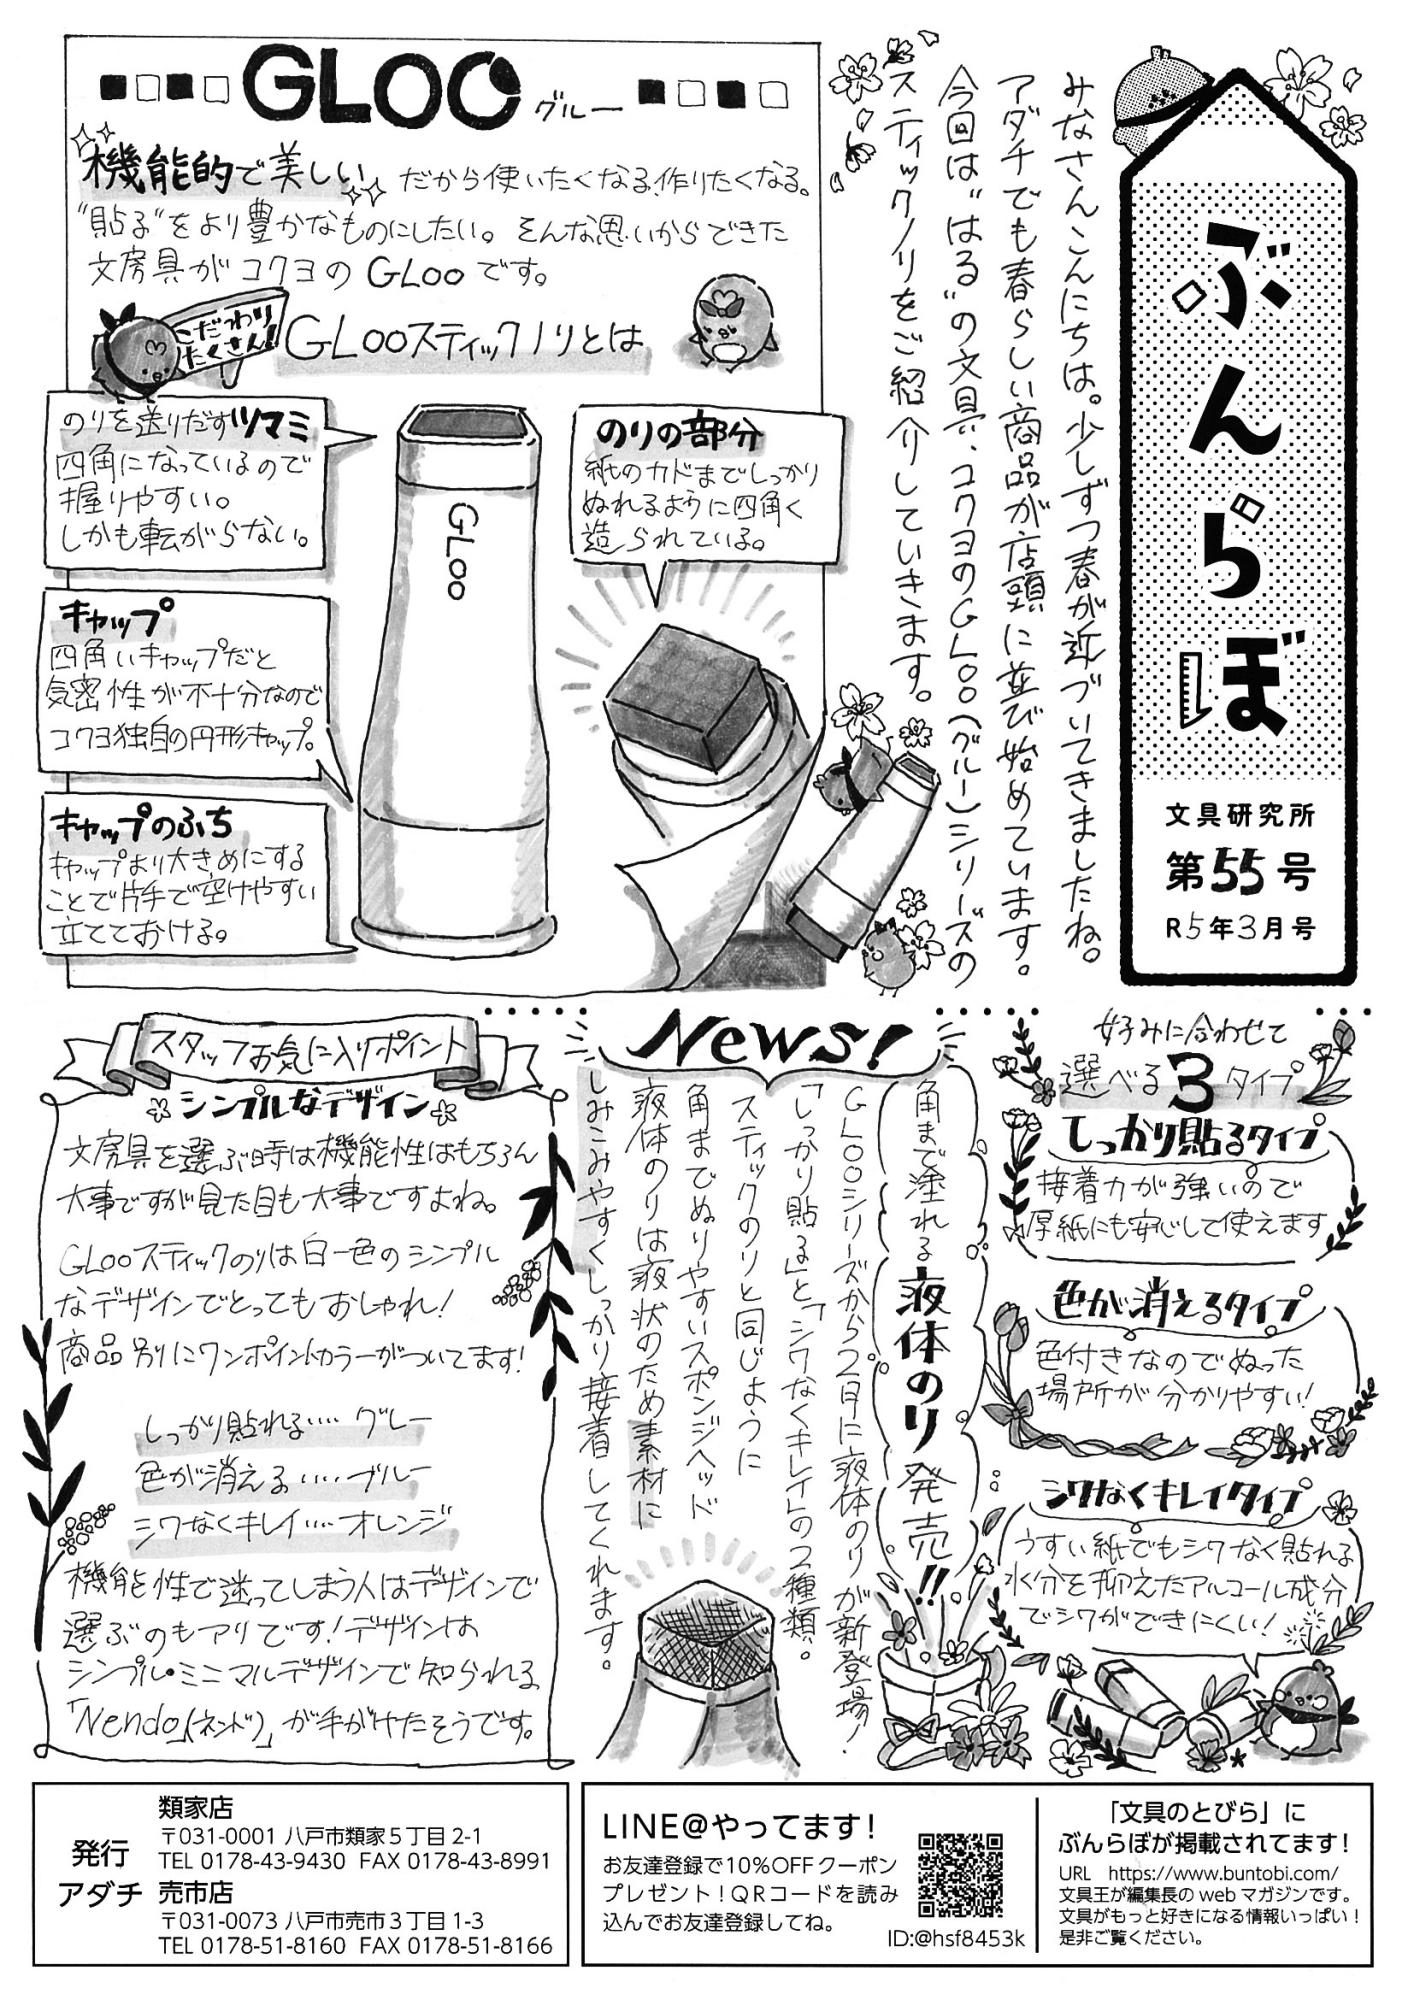 ぶんらぼ
文具研究所
第55号
R5年3月号
みなさんこんにちは。少しずつ春が近づいてきましたね。
アダチでも春らしい商品が店頭に並び始めています。
今回は"はる"の文具、コクヨのGLOO(グルー)シリーズの
スティックノリをご紹介していきます。
GLOO グルー
機能的で美しい だから使いたくなる、作りたくなる。
"貼る"をより豊かなものにしたい。そんな思いからできた
文房具がコクヨのGLOOです。
こだわり
たくさん!
GLOOスティックノリとは
のりを送りだすツマミ
四角になっているので
握りやすい。
しかも転がらない。
キャップ
四角いキャップだと
気密性が不十分なので
コクヨ独自の円形キャップ。
キャップのふち
キャップより大きめにする
ことで片手で空けやすい
立てておける。
GLOO
のりの部分
紙のカドまでしっかり
ぬれるように四角く
造られている。
好みに合わせて
選べる3タイプ
しっかり貼るタイプ
接着力が強いので
厚紙にも安心して使えます
色が消えるタイプ
色付きなのでぬった
場所が分かりやすい!
シワなくキレイタイプ
うすい紙でもシワなく貼れる
水分を抑えたアルコール成分
でシワができにくい!
News!
角まで塗れる液体のり発売!!
GLOOシリーズから2月に液体のりが新登場!
「しっかり貼る」と「シワなくキレイ」の2種類。
スティックのりと同じように
角までぬりやすいスポンジヘッド
液体のりは液状のため素材に
しみこみやすくしっかり接着してくれます。
スタッフお気に入りポイント
シンプルなデザイン
文房具を選ぶ時は機能性はもちろん
大事ですが見た目も大事ですよね。
GLOOスティックのりは白一色のシンプル
なデザインでとってもおしゃれ!
商品別にワンポイントカラーがついてます!
しっかり貼れる‥‥グレー
色が消える‥‥ブルー
シワなくキレイ‥‥オレンジ
機能性で迷ってしまう人はデザインで
選ぶのもアリです!デザインは
シンプル・ミニマルデザインで知られる
「Nendo」(ネンド)」が手がけたそうです。
発行
アダチ
類家店
〒031-0001 八戸市類家5丁目2-1
TEL 0178-43-9430 FAX 0178-43-8991
売市店
〒031-0073 八戸市売市3丁目1-3
TEL 0178-51-8160 FAX 0178-51-8166
LINE@やってます!
お友達登録で10%OFFクーポン
プレゼント!QRコードを読み
込んでお友達登録してね。
ID:@hsf8453k
「文具のとびら」に
ぶんらぼが掲載されてます!
URL https://www.buntobi.com/
文具王が編集長のwebマガジンです。
文具がもっと好きになる情報いっぱい!
是非ご覧ください。